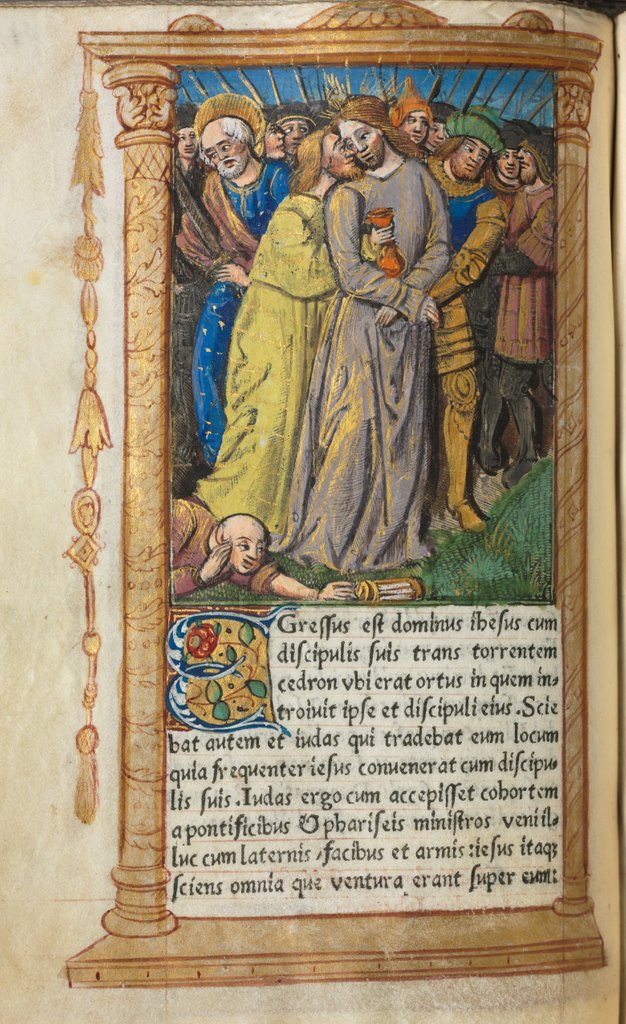 EGressus est dominus ihesus cum
discipulis suis trans torrentem
cedron vbi erat ortus in quem in-
troiuit ipse et discipuli eius. Scie
bat autem et iudas qui tradebat eum locum
quia frequenter iesus convenerat cum discipu-
lis suis. Iudas ergo cum accepisset cohortem
a pontificibus & phariseis ministros venit il-
luc cum laternis / facibus et armis: iesus itaqȝ
sciens omnia que ventura erant super eum: